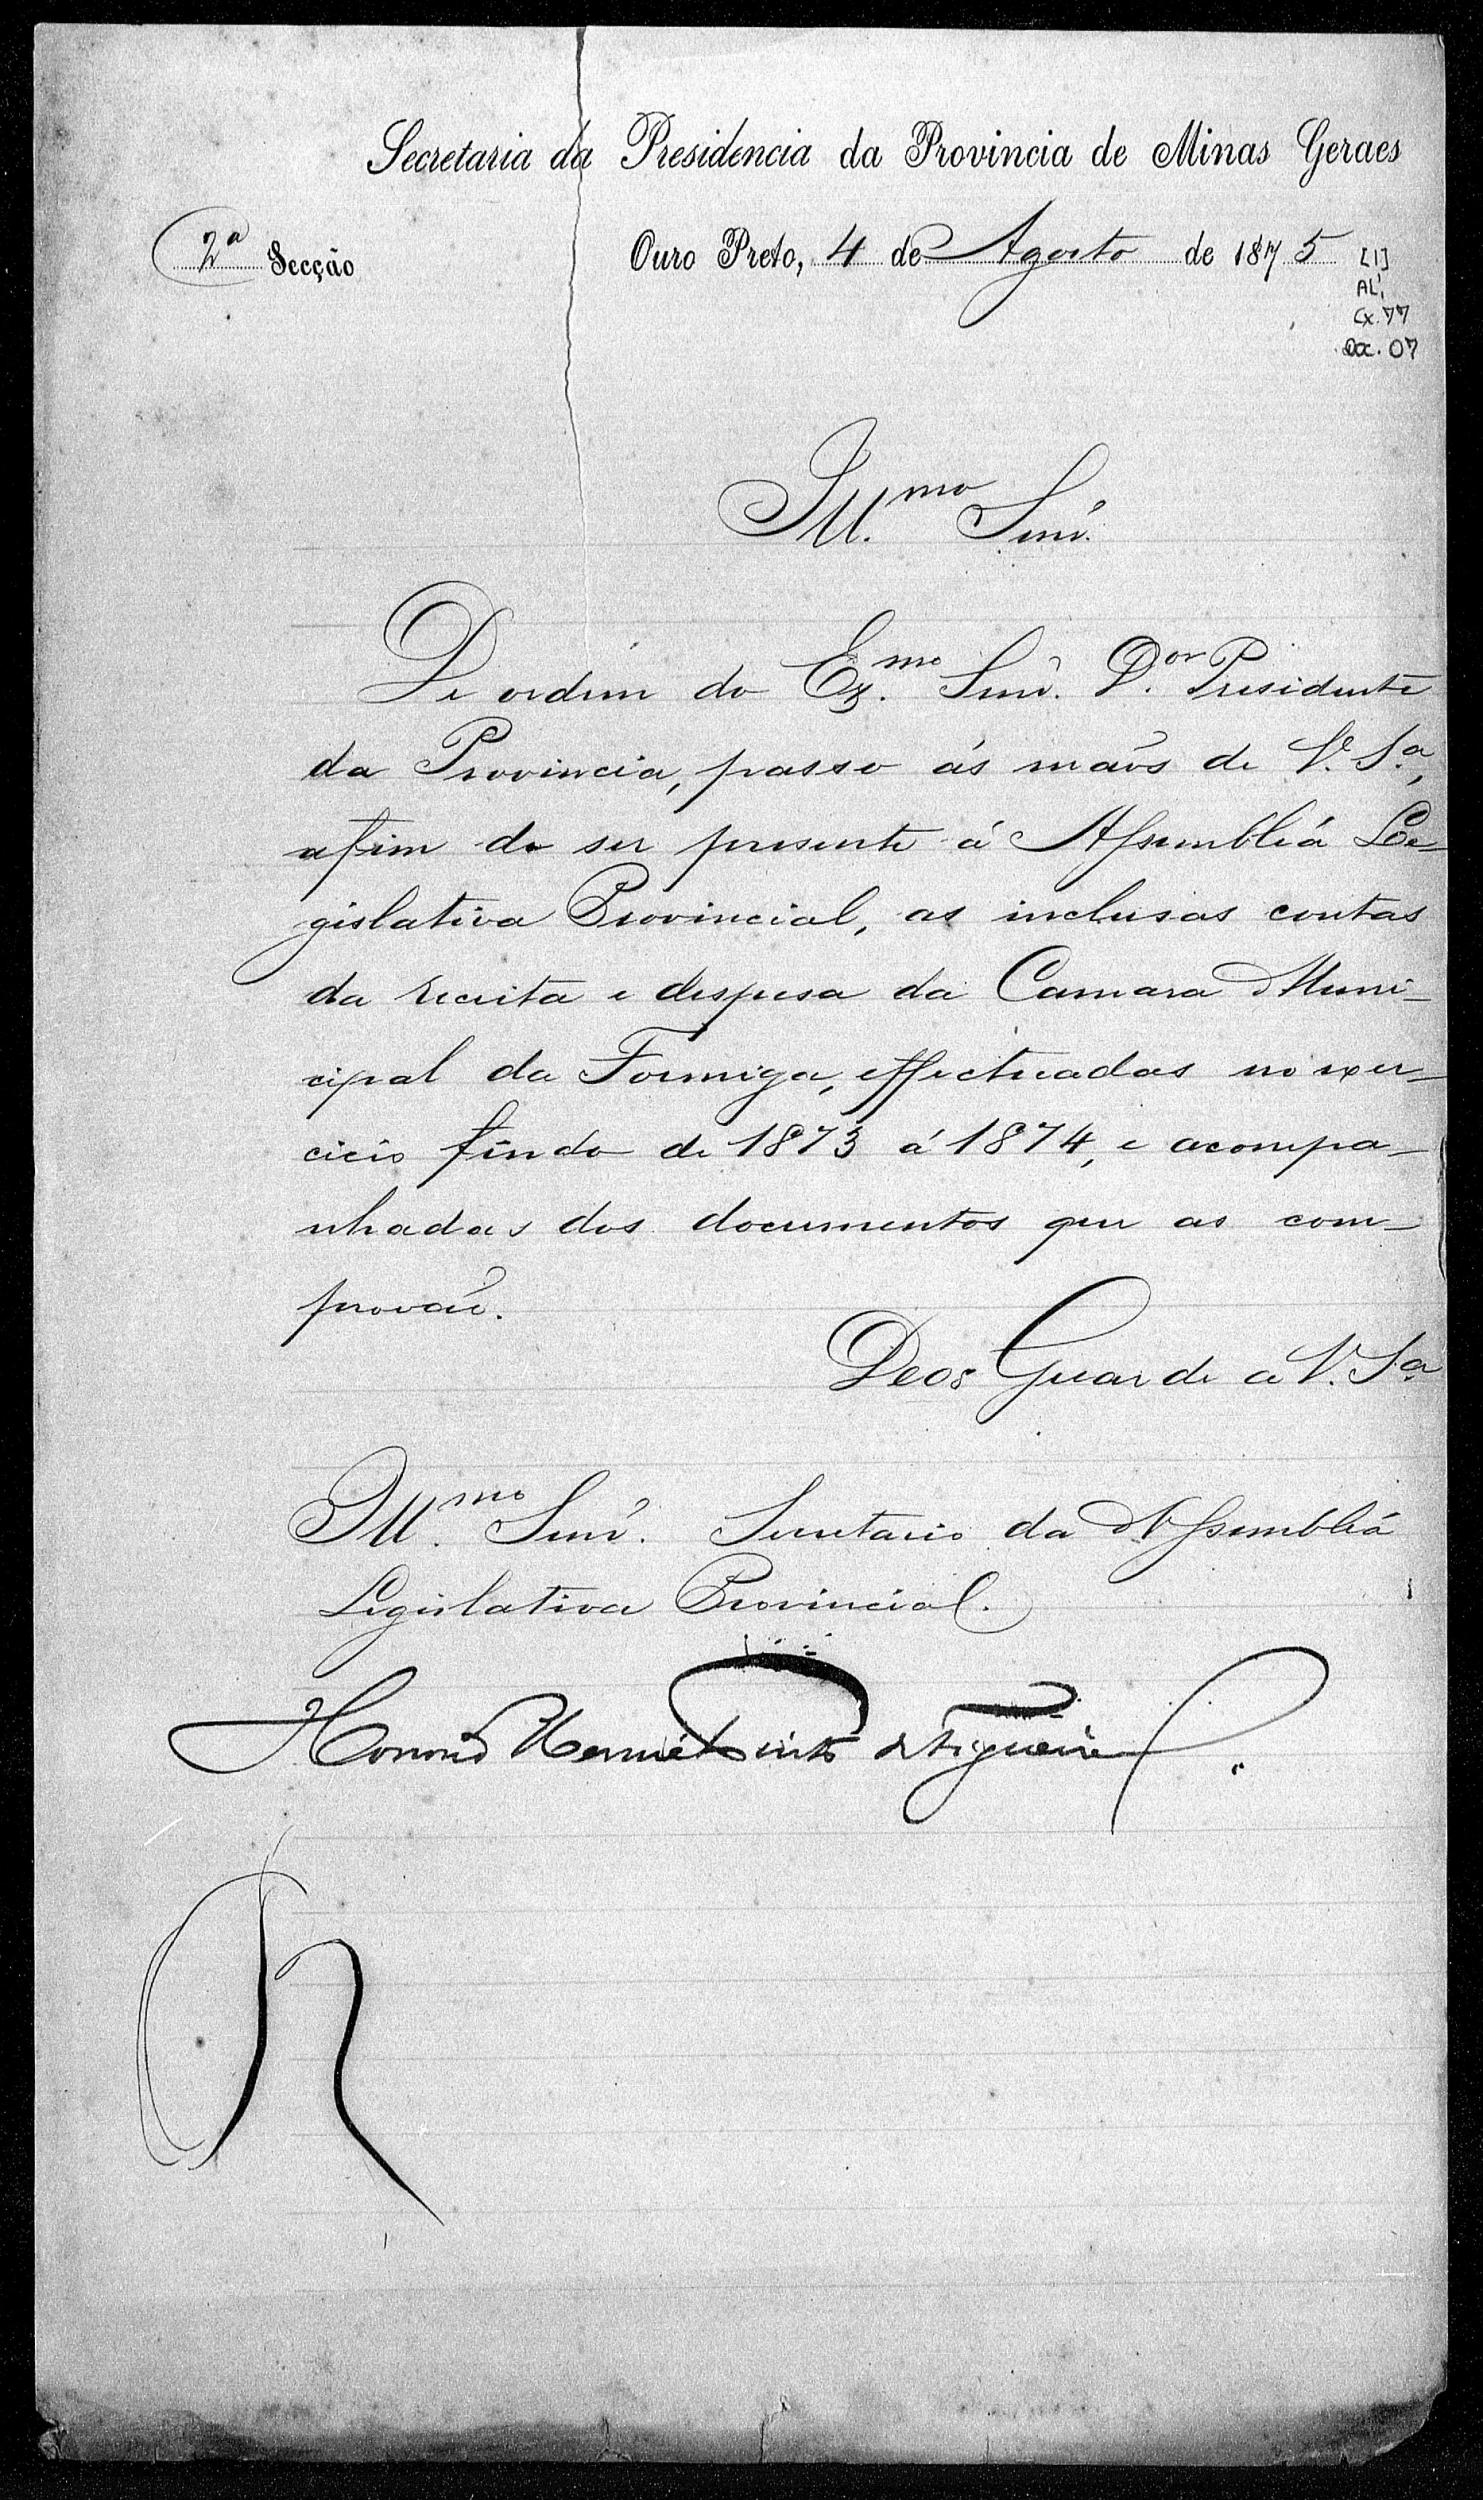 Secretaria da Presidencia da Provincia de Minas Geraes
2ª Secção
Ouro Preto, 4 de Agosto de 1875
[1]
AL,
Cx. 77
Doc. 07
Ill.mo Snr.
De ordem do Ex.mo Snr. D.or Presidente
da Provincia, passo ás mãos de V. S.ª,
afim de ser presente á Assembléa Le-
gislativa Provincial, as inclusas contas
da receita e despesa da Camara Muni-
cipal da Formiga, effectuadas no exer-
cicio findo de 1873 á 1874, e acompa-
nhadas dos documentos que as com-
provão.
Deos Guarde a V. S.ª
Ill.mo Snr. Secretario da Assembléa
Legislativa Provincial.
Honorio Hermeto Pinto de Figueire